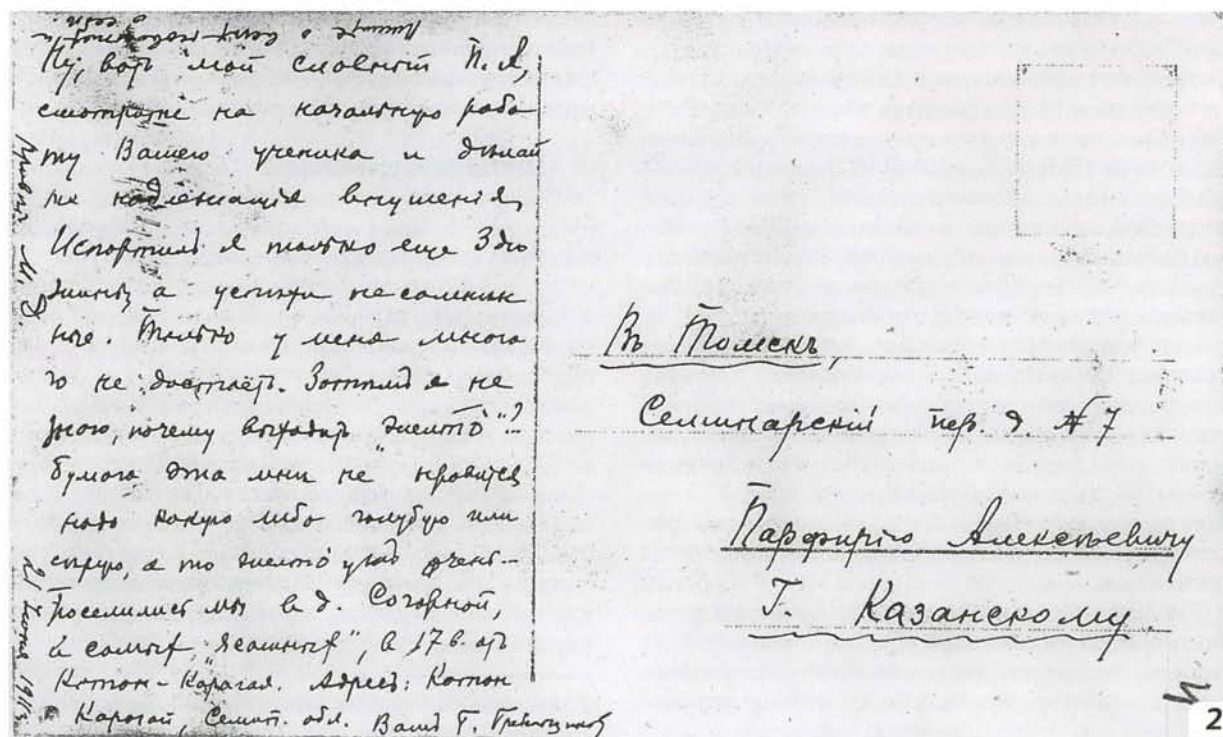 Пишите о
Ну, вотъ мой славный П. А
смотрите на начальную рабо-
ту Вашего ученика и
те надлежащія внушенія,
Испортилъ я только еще 3
а успѣхи несомнѣн
ные. Только у меня много
го не достаетъ. я не
знаю, почему выходитъ
бумага эта мнѣ не нравится
надо какую либо голубую или
сѣрую а то
Поселились мы в д. Согорной,
в самыхъ в 17 в. отъ
Котон-Карагая. Адресъ: Котон
Карагай, Семип. обл. Вашъ Г. Гребенщиков
Привѣтъ М. Д.
21 1911 г.
Въ Томскъ,
Семинарскій пер. д № 7
Парфирію Алексѣевичу
Г. Казанскому.
2